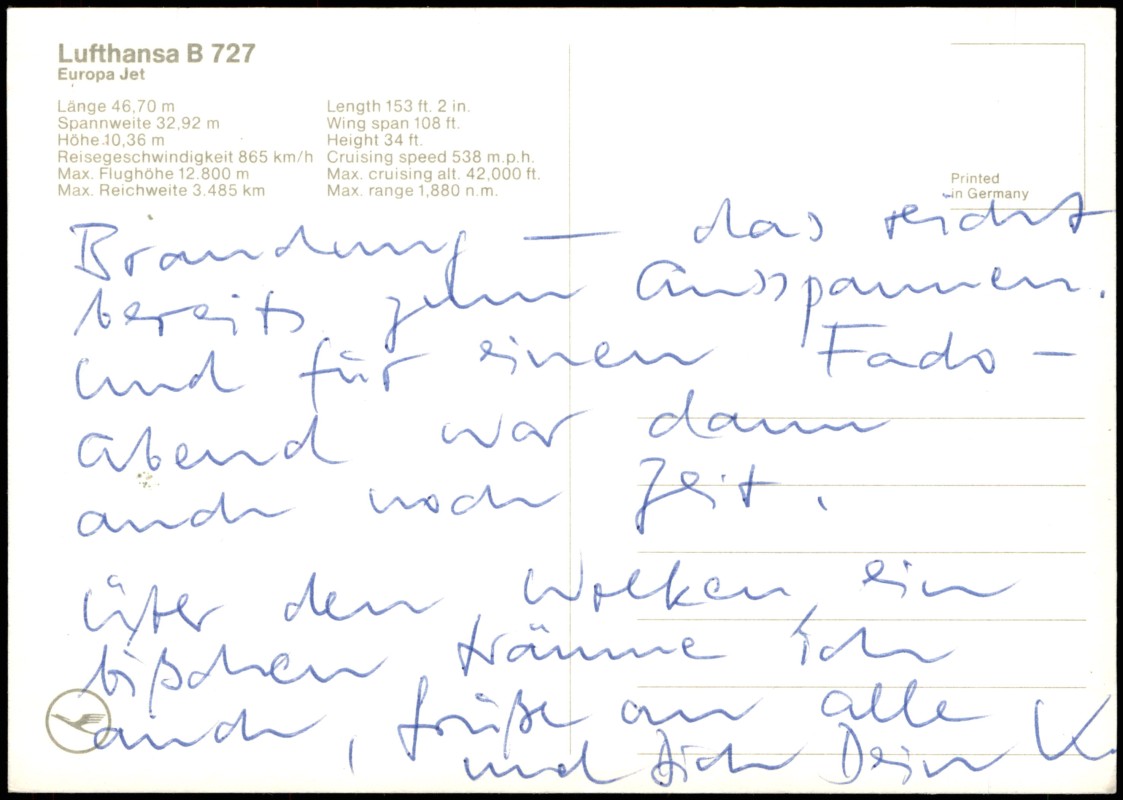 Lufthansa B 727
Europa Jet
Länge 46,70 m
Spannweite 32,92 m
Höhe 10,36 m
Reisegeschwindigkeit 865 km/h
Max. Flughöhe 12.800 m
Max. Reichweite 3.485 km
Length 153 ft. 2 in.
Wing span 108 ft.
Height 34 ft.
Cruising speed 538 m.p.h.
Max. cruising alt. 42,000 ft.
Max. range 1,880 n.m.
Printed
in Germany
Brandung — das reicht
bereits zum Ausspannen.
Und für einen Fado-
abend war dann
auch noch Zeit.
Über den Wolken, ein
bißchen träume ich
auch, Grüße an alle
und Dich Dein K.